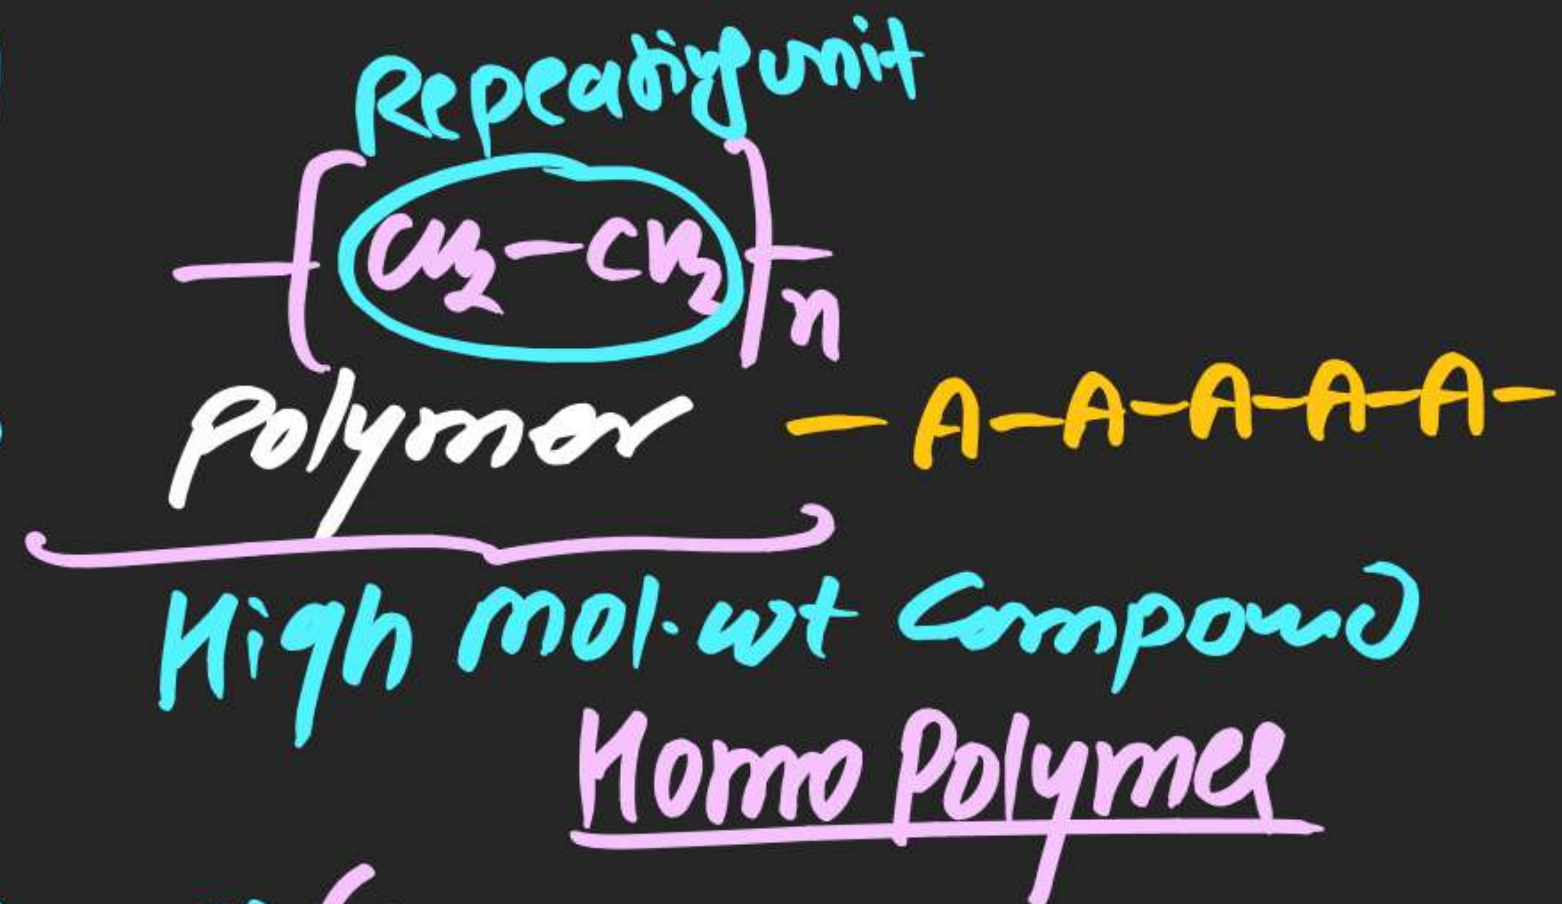 Repeating unit
-[CH2-CH2]-n
Polymer -A-A-A-A-A-
High mol.wt Compound
Homo Polymer